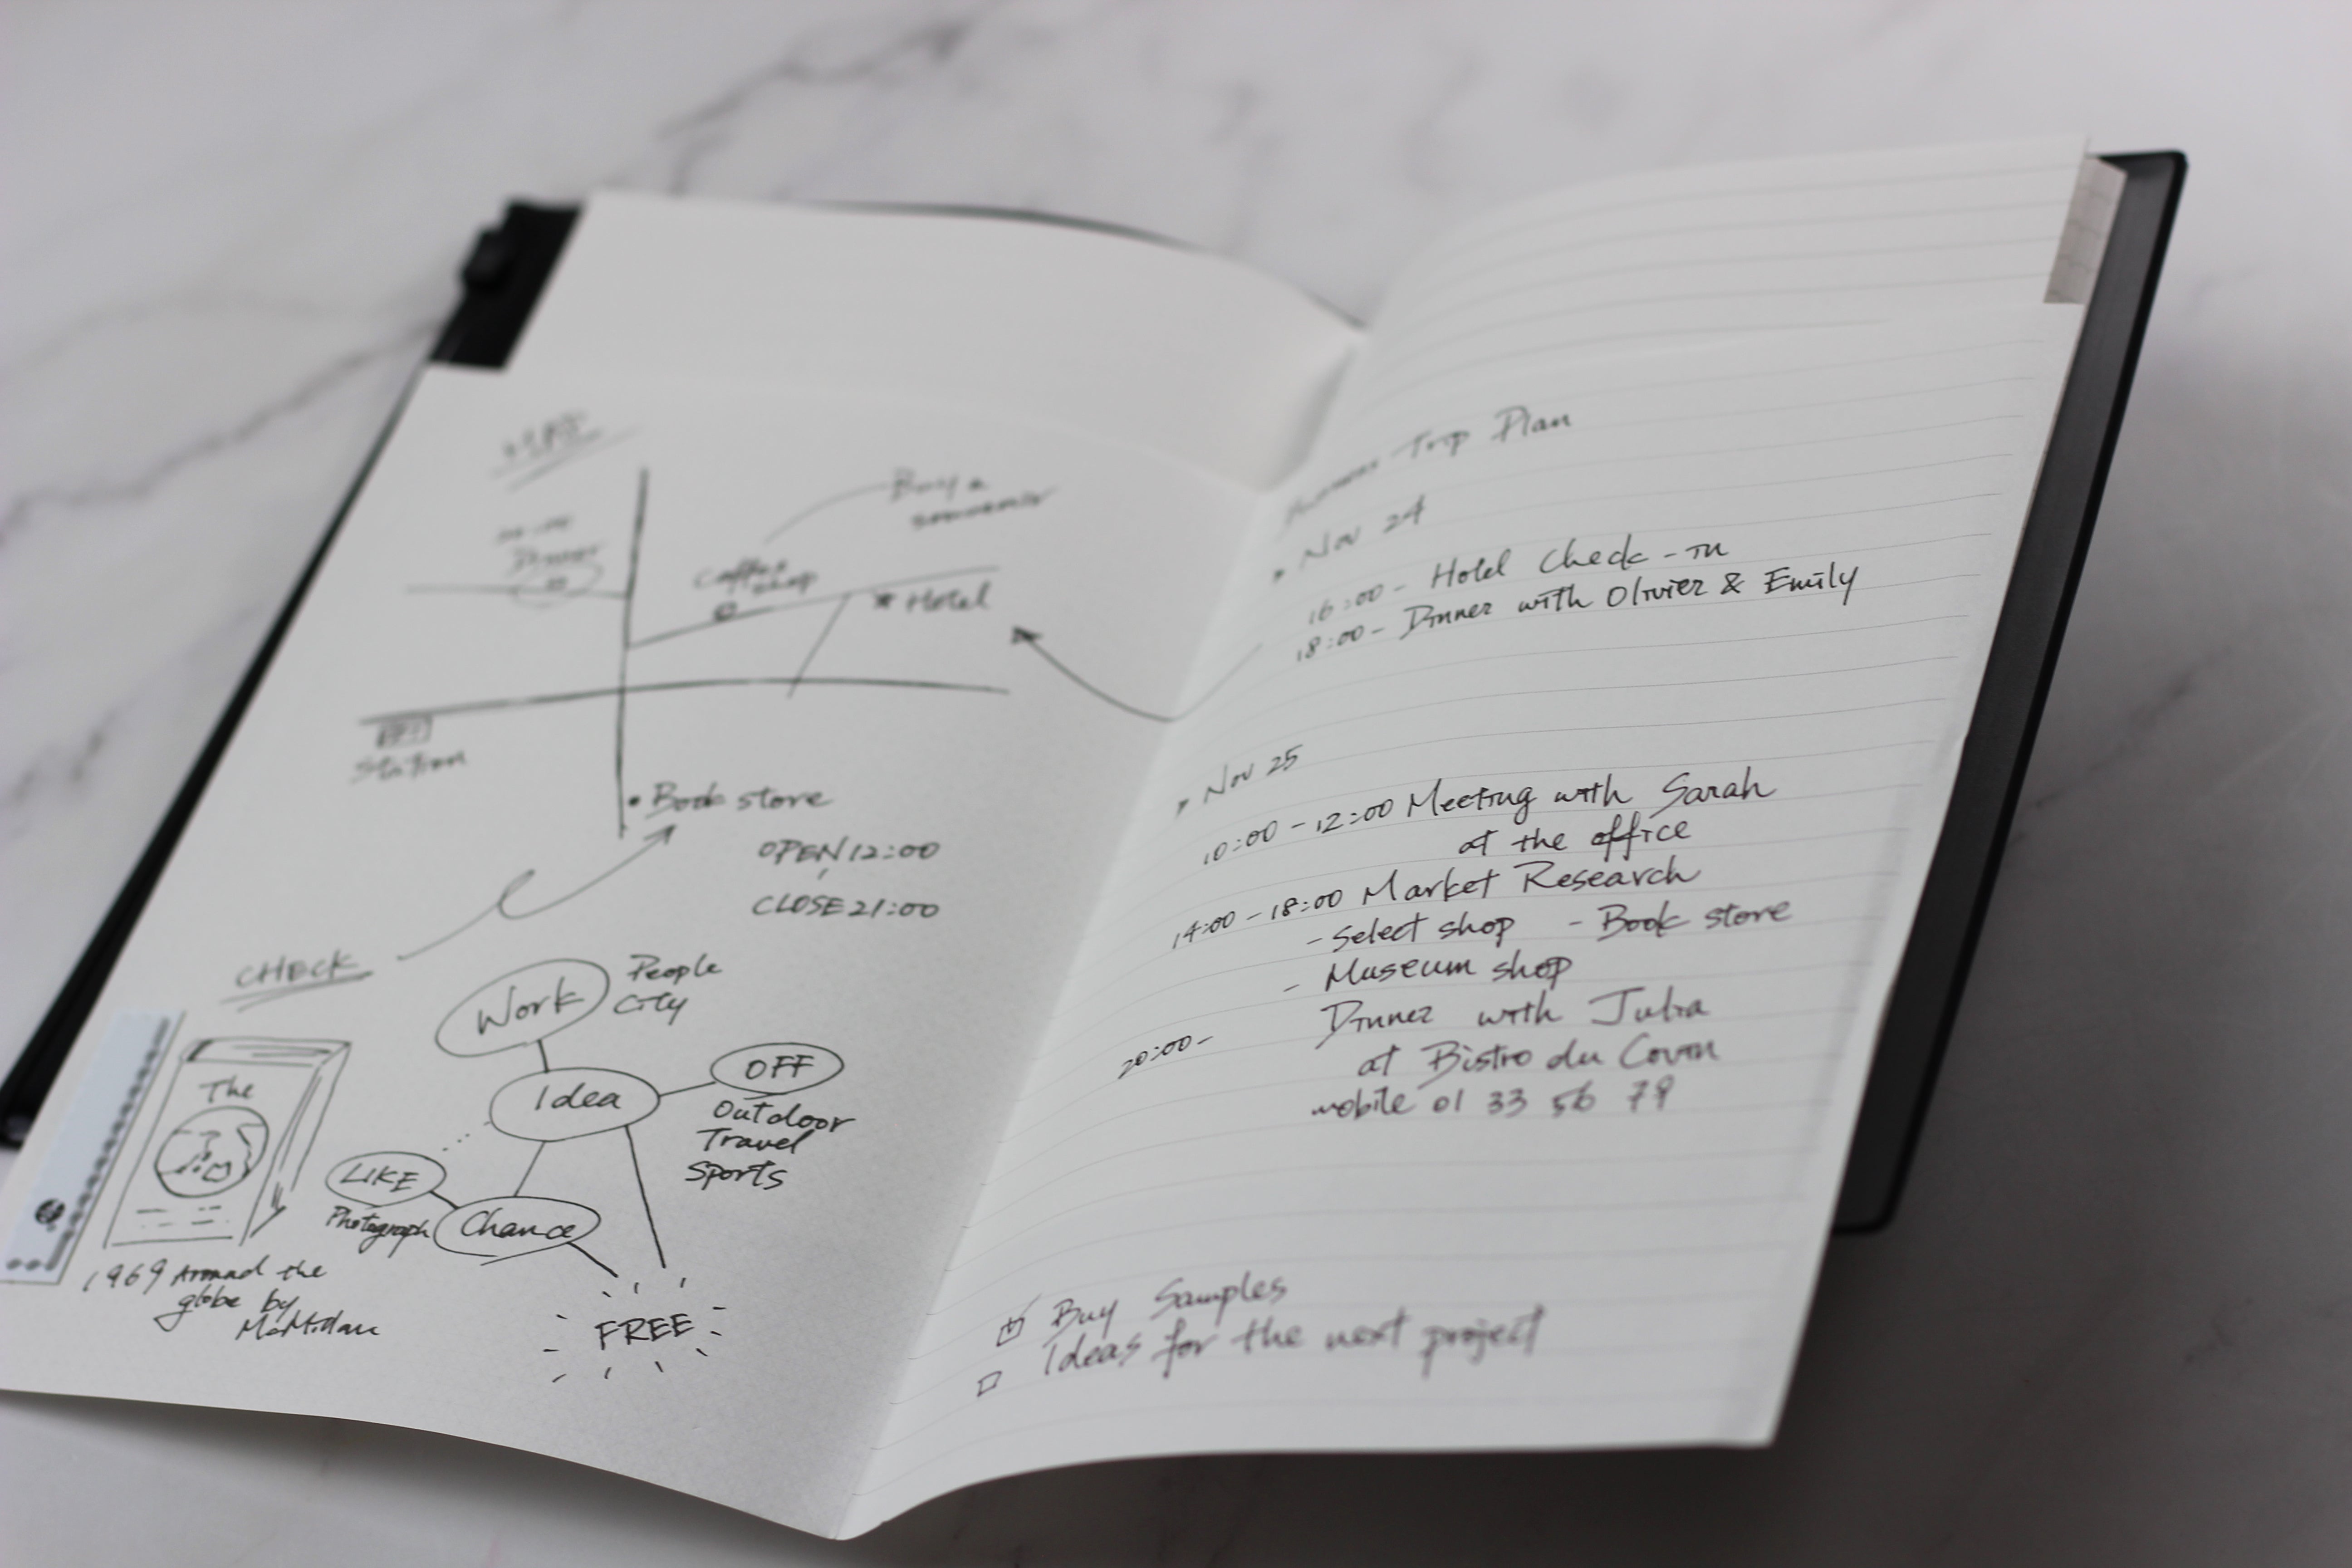 MAP
Dinner
Buy a
souvenir
Coffee
shop
★ Hotel
Station
• Book store
OPEN 12:00
CLOSE 21:00
CHECK
Work
People
City
Idea
OFF
Outdoor
Travel
Sports
LIKE
Photograph
Chance
FREE
The
1969 Around the
globe by
Trip Plan
Nov 24
16:00 - Hotel Check-in
18:00 - Dinner with Olivier & Emily
Nov 25
10:00 - 12:00 Meeting with Sarah
at the office
14:00 - 18:00 Market Research
- Select shop - Book store
- Museum shop
20:00 - Dinner with Julia
at Bistro du
mobile 01 33 56 79
Buy Samples
Ideas for the next project